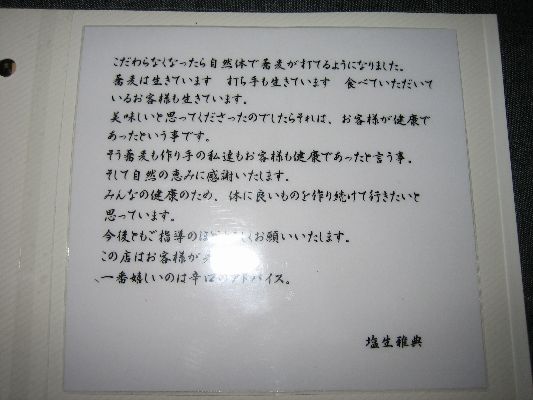 こだわらなくなったら自然体で蕎麦が打てるようになりました。
蕎麦は生きています　打ち手も生きています　食べていただいて
いるお客様も生きています。
美味しいと思ってくださったのでしたらそれは、お客様が健康で
あったという事です。
そう蕎麦も作り手の私達もお客様も健康であったと言う事。
そして自然の恵みに感謝いたします。
みんなの健康のため、体に良いものを作り続けて行きたいと
思っています。
今後ともご指導のほどよろしくお願いいたします。
この店はお客様が
一番嬉しいのは辛口のアドバイス。
塩生雅典